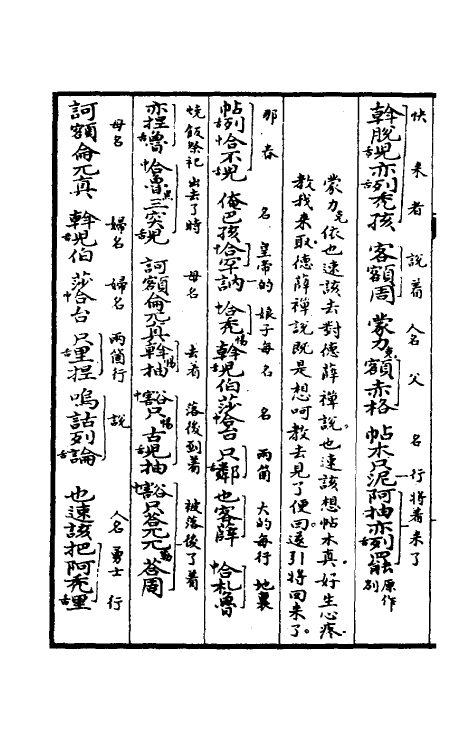 快 来 者 說着 人名 父 名 行 將着来了
斡脫舌兒亦列禿孩 客額周 蒙力克額赤格 帖木只泥阿抽亦列罷 原作别
蒙力克依也速該去對德薛禪說。也速該想帖木真。好生心疼。
教我来取。德薛禪說既是想呵教去見了便回。遂引將回来了。
那春 名 皇帝的 娘子每 名 名 兩箇 大的每行 地裏
帖列合不舌兒 俺巴孩中合罕訥 中合禿惕 斡舌兒伯莎中合台 只舌鄰 也客薛 中合札魯
燒飯祭祀 出去了時 母名 去着 落後到着 被落後了着
亦捏魯 中合舌魯黑三突舌兒 訶額侖兀真斡惕抽 中豁只惕古舌兒抽 中豁只荅兀兀勒荅周
母名 婦名 婦名 兩箇行 說 人名 勇士 行
訶額侖兀真 斡舌兒伯 莎中合台 只舌里捏 嗚詁列舌論 也速該把阿禿舌里